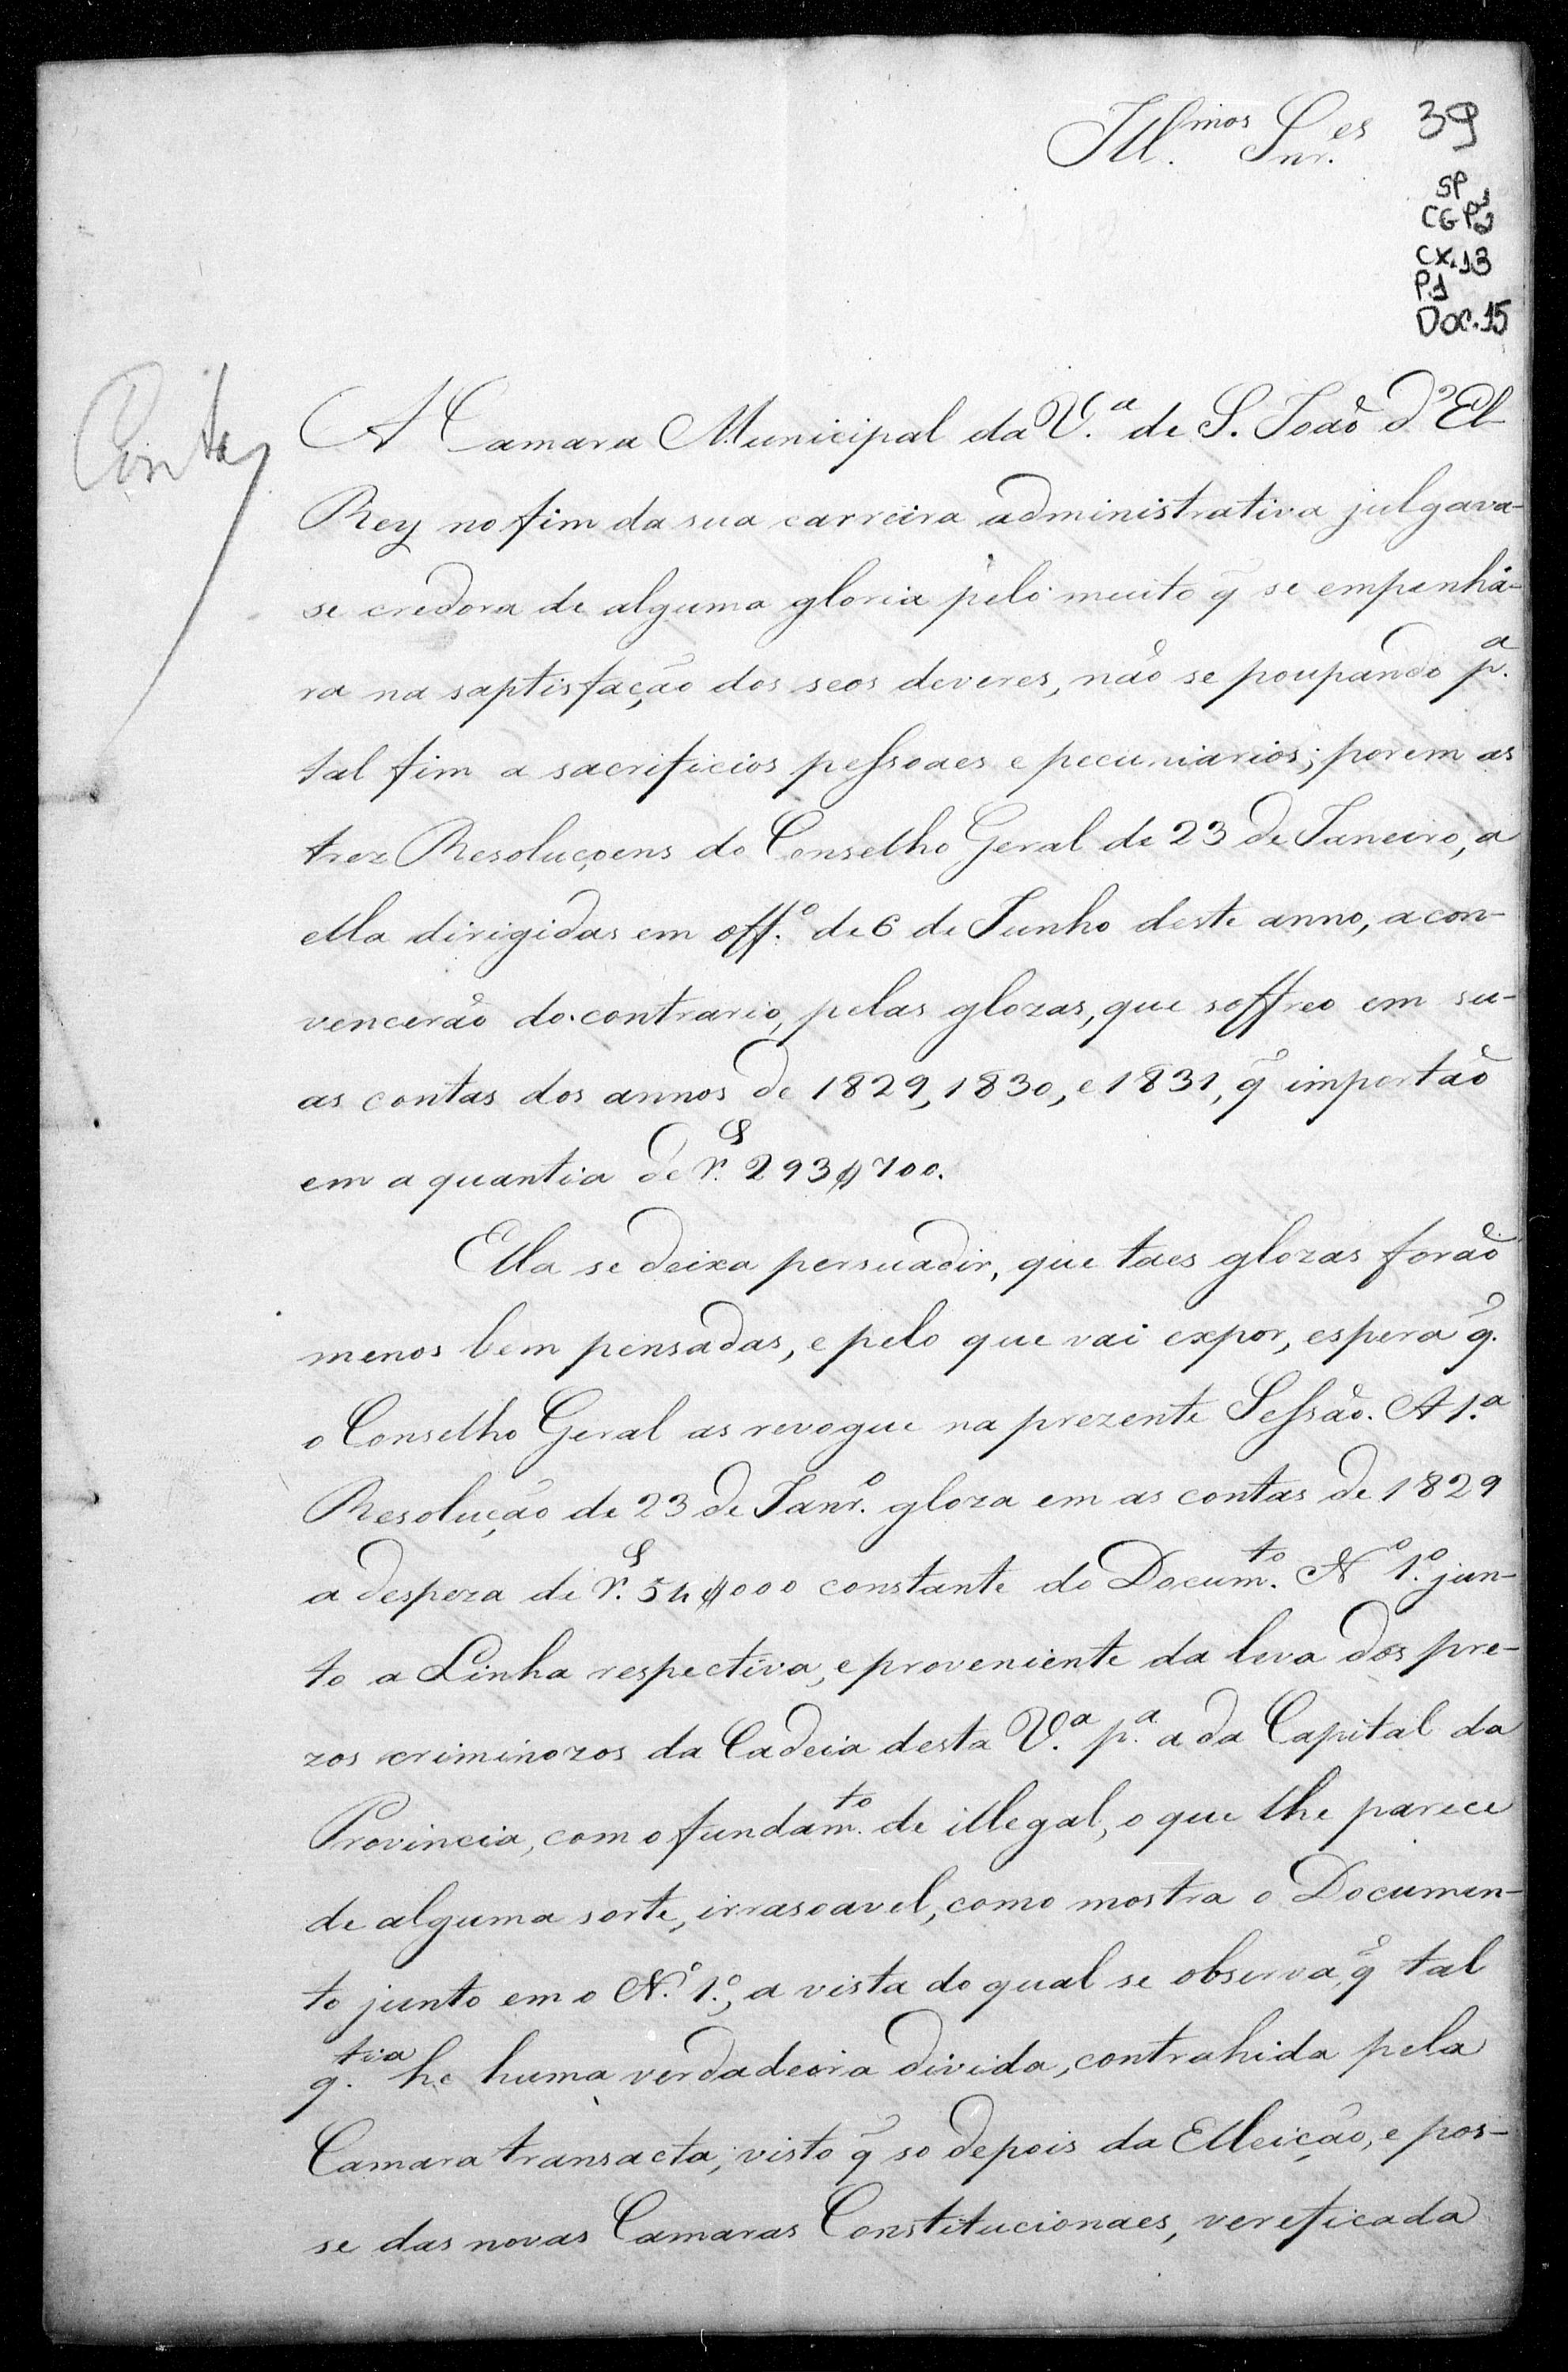 Ill.mos Snr.es
39
SP
CGP2
CX.13
P.1
Doc.15
Contas
A Camara Municipal da V.a de S. João d'El
Rey no fim da sua carreira administrativa julgava-
se credora de alguma gloria pelo muito q̃ se empenhá-
ra na saptisfação dos seos deveres, não se poupando p.a
tal fim a sacrificios pessoaes e pecuniarios; porem as
trez Resoluçoens do Conselho Geral de 23 de Janeiro, a
ella dirigidas em off.o de 6 de Junho deste anno, a con-
vencerão do contrario, pelas glozas, que soffreo em su-
as contas dos annos de 1829, 1830, e 1831, q̃ importão
em a quantia de r.s 293$700.
Ella se deixa persuadir, que taes glozas forão
menos bem pensadas, e pelo que vai expor, espera q̃.
o Conselho Geral as revogue na prezente Sessão. A 1.a
Resolução de 23 de Janr.o gloza em as contas de 1829
a despeza de r.s 54$000 constante do Docum.to N.o 1.o jun-
to a Linha respectiva, e proveniente da leva dos pre-
zos criminozos da Cadeia desta V.a p.a a da Capital da
Provincia, com o fundam.to de illegal, o que lhe parece
de alguma sorte, irrasoavel, como mostra o Documen-
to junto em o N.o 1.o, a vista do qual se observa, q̃ tal
q.tia he huma verdadeira divida, contrahida pela
Camara transacta; visto q̃ so depois da Elleição, e pos-
se das novas Camaras Constitucionaes, vereficada